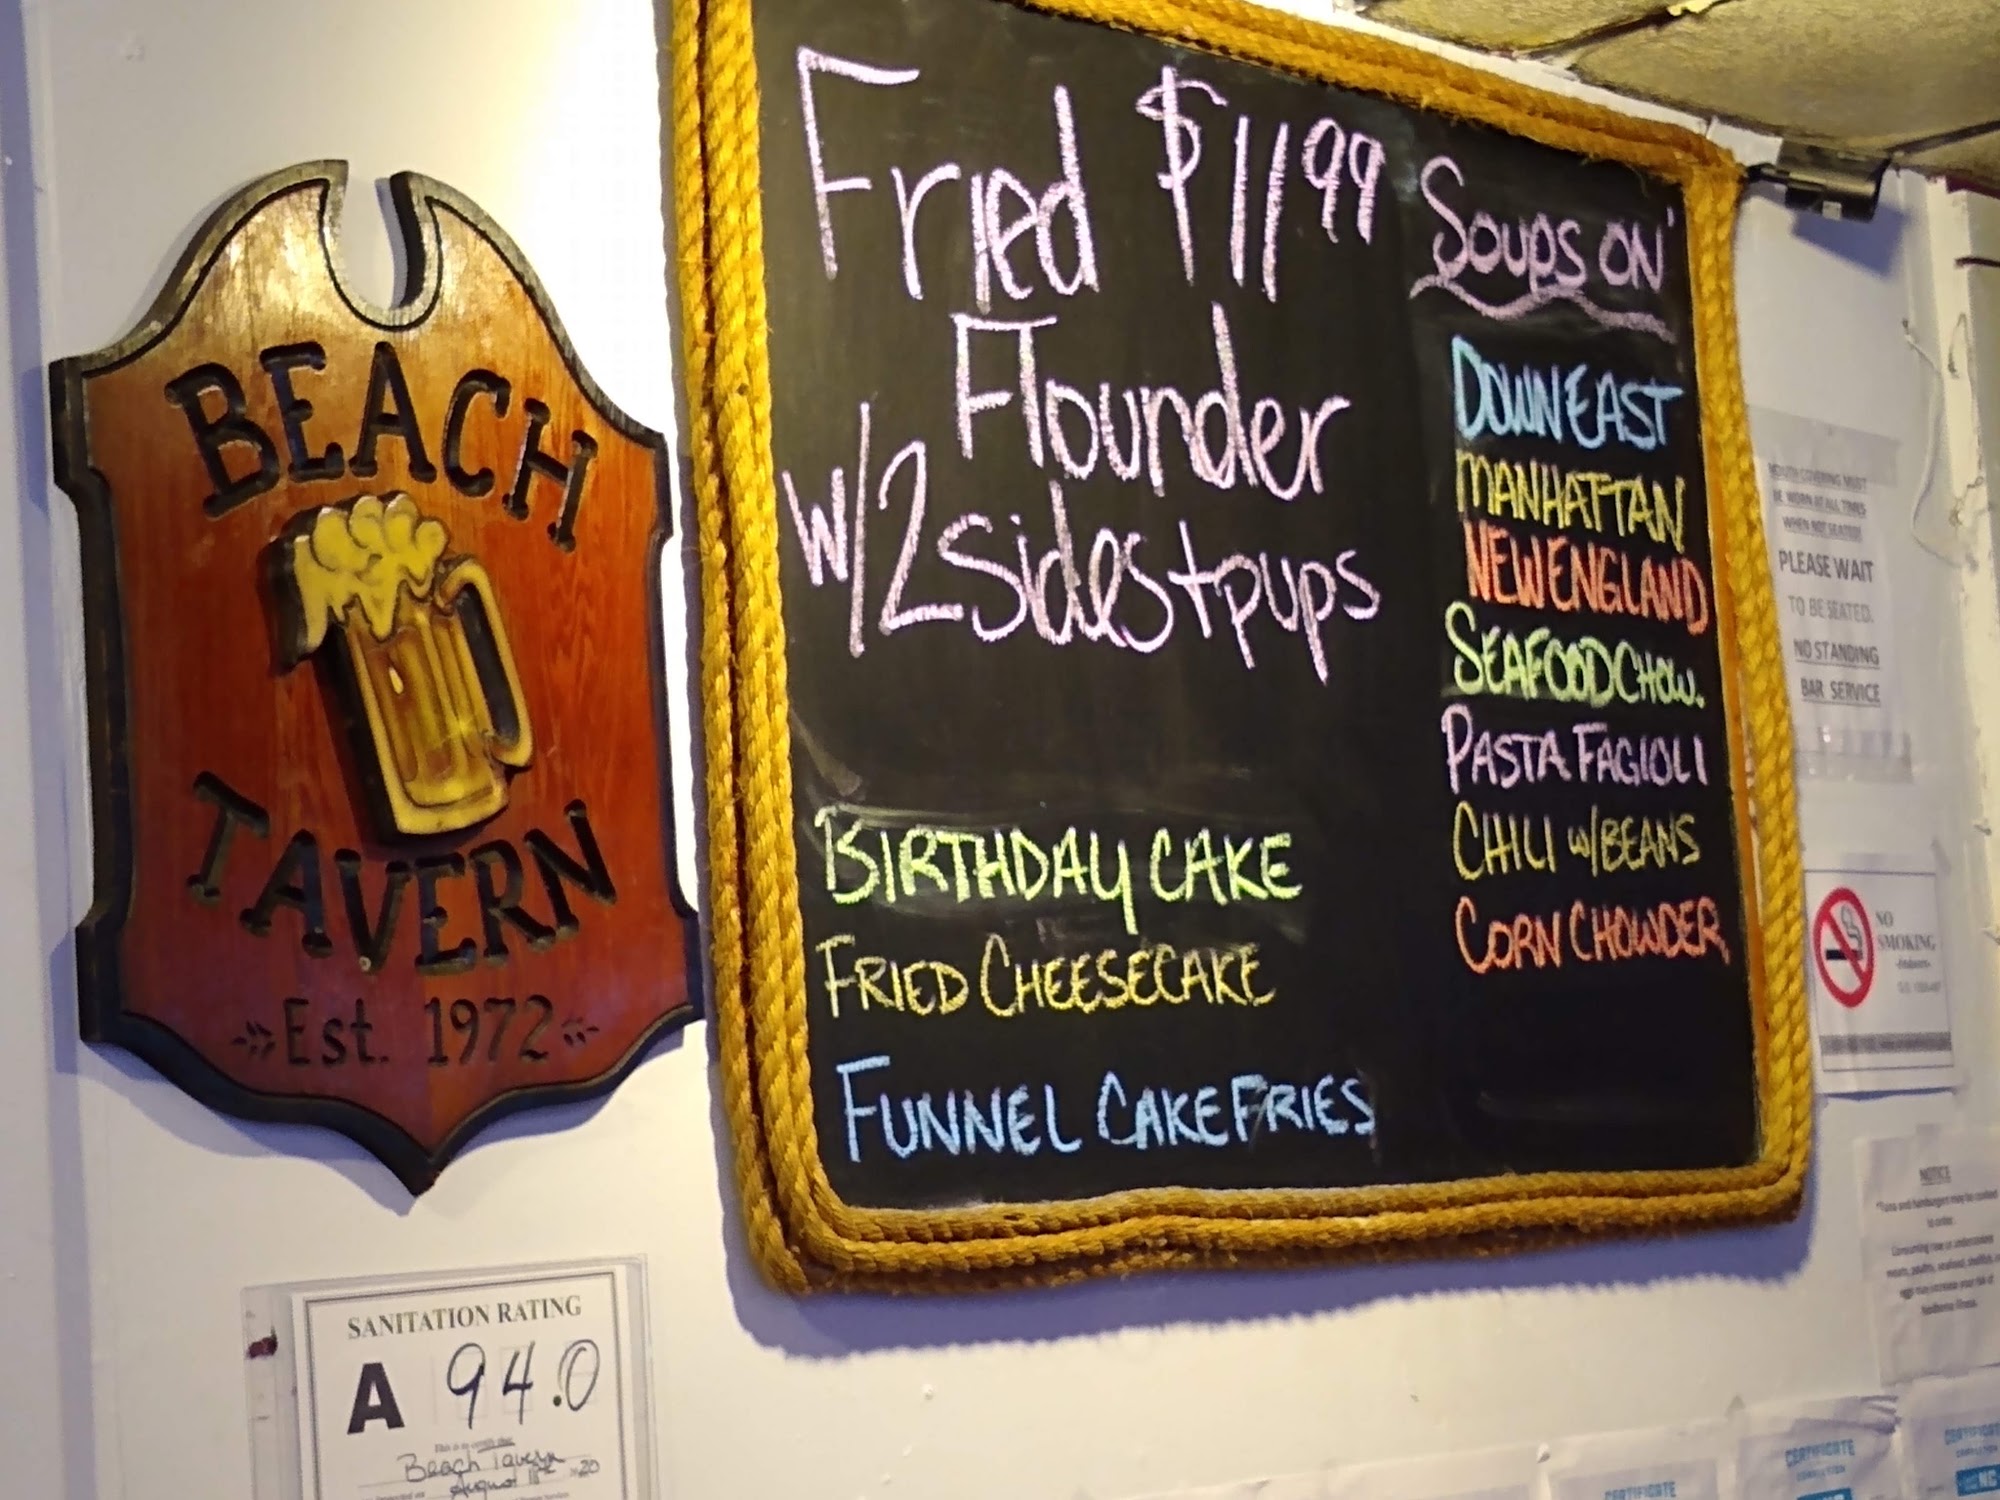 BEACH
TAVERN
Est. 1972
Fried $11.99
Flounder
w/2 sides + pups
BIRTHDAY CAKE
FRIED CHEESECAKE
FUNNEL CAKE FRIES
SOUPS ON'
DOWN EAST
MANHATTAN
NEW ENGLAND
SEAFOOD CHOW.
PASTA FAGIOLI
CHILI w/BEANS
CORN CHOWDER
SANITATION RATING
A 94.0
This is to certify that
Beach Tavern
August 18 20
MUST
BE WORN AT ALL TIMES
WHEN NOT SEATED!
PLEASE WAIT
TO BE SEATED.
NO STANDING
BAR SERVICE
NO
SMOKING
NOTICE
CERTIFICATE
CERTIFICATE
CERTIFICATE